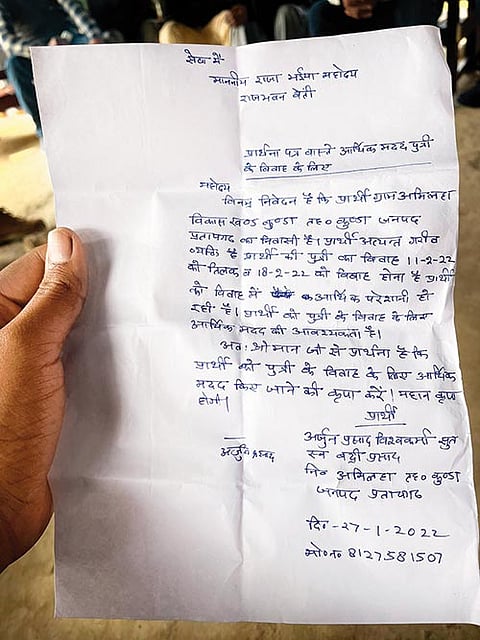 सेवा में
माननीय राजा भईया महोदय
राजभवन बेंती
प्रार्थना पत्र वास्ते आर्थिक मदद पुत्री
के विवाह के लिए
महोदय
विनम्र निवेदन है कि प्रार्थी ग्राम अमिलहा
विकास खण्ड कुण्डा तह० कुण्डा जनपद
प्रतापगढ का निवासी है। प्रार्थी अत्यन्त गरीब
व्यक्ति है प्रार्थी की पुत्री का विवाह 11-2-22
को तिलक व 18-2-22 को विवाह होना है प्रार्थी
को विवाह में आर्थिक परेशानी हो
रही है। प्रार्थी को पुत्री के विवाह के लिए
आर्थिक मदद की आवश्यकता है।
अतः श्री मान जी से प्रार्थना है कि
प्रार्थी को पुत्री के विवाह के लिए आर्थिक
मदद किए जाने की कृपा करें। महान कृपा
होगी।
प्रार्थी
अर्जुन प्रसाद विश्वकर्मा सुत
स्व बद्री प्रसाद
नि० अमिलहा तह० कुण्डा
जनपद प्रतापगढ
अर्जुन प्रसाद
दि० -27-1-2022
मो०न० 8127581507